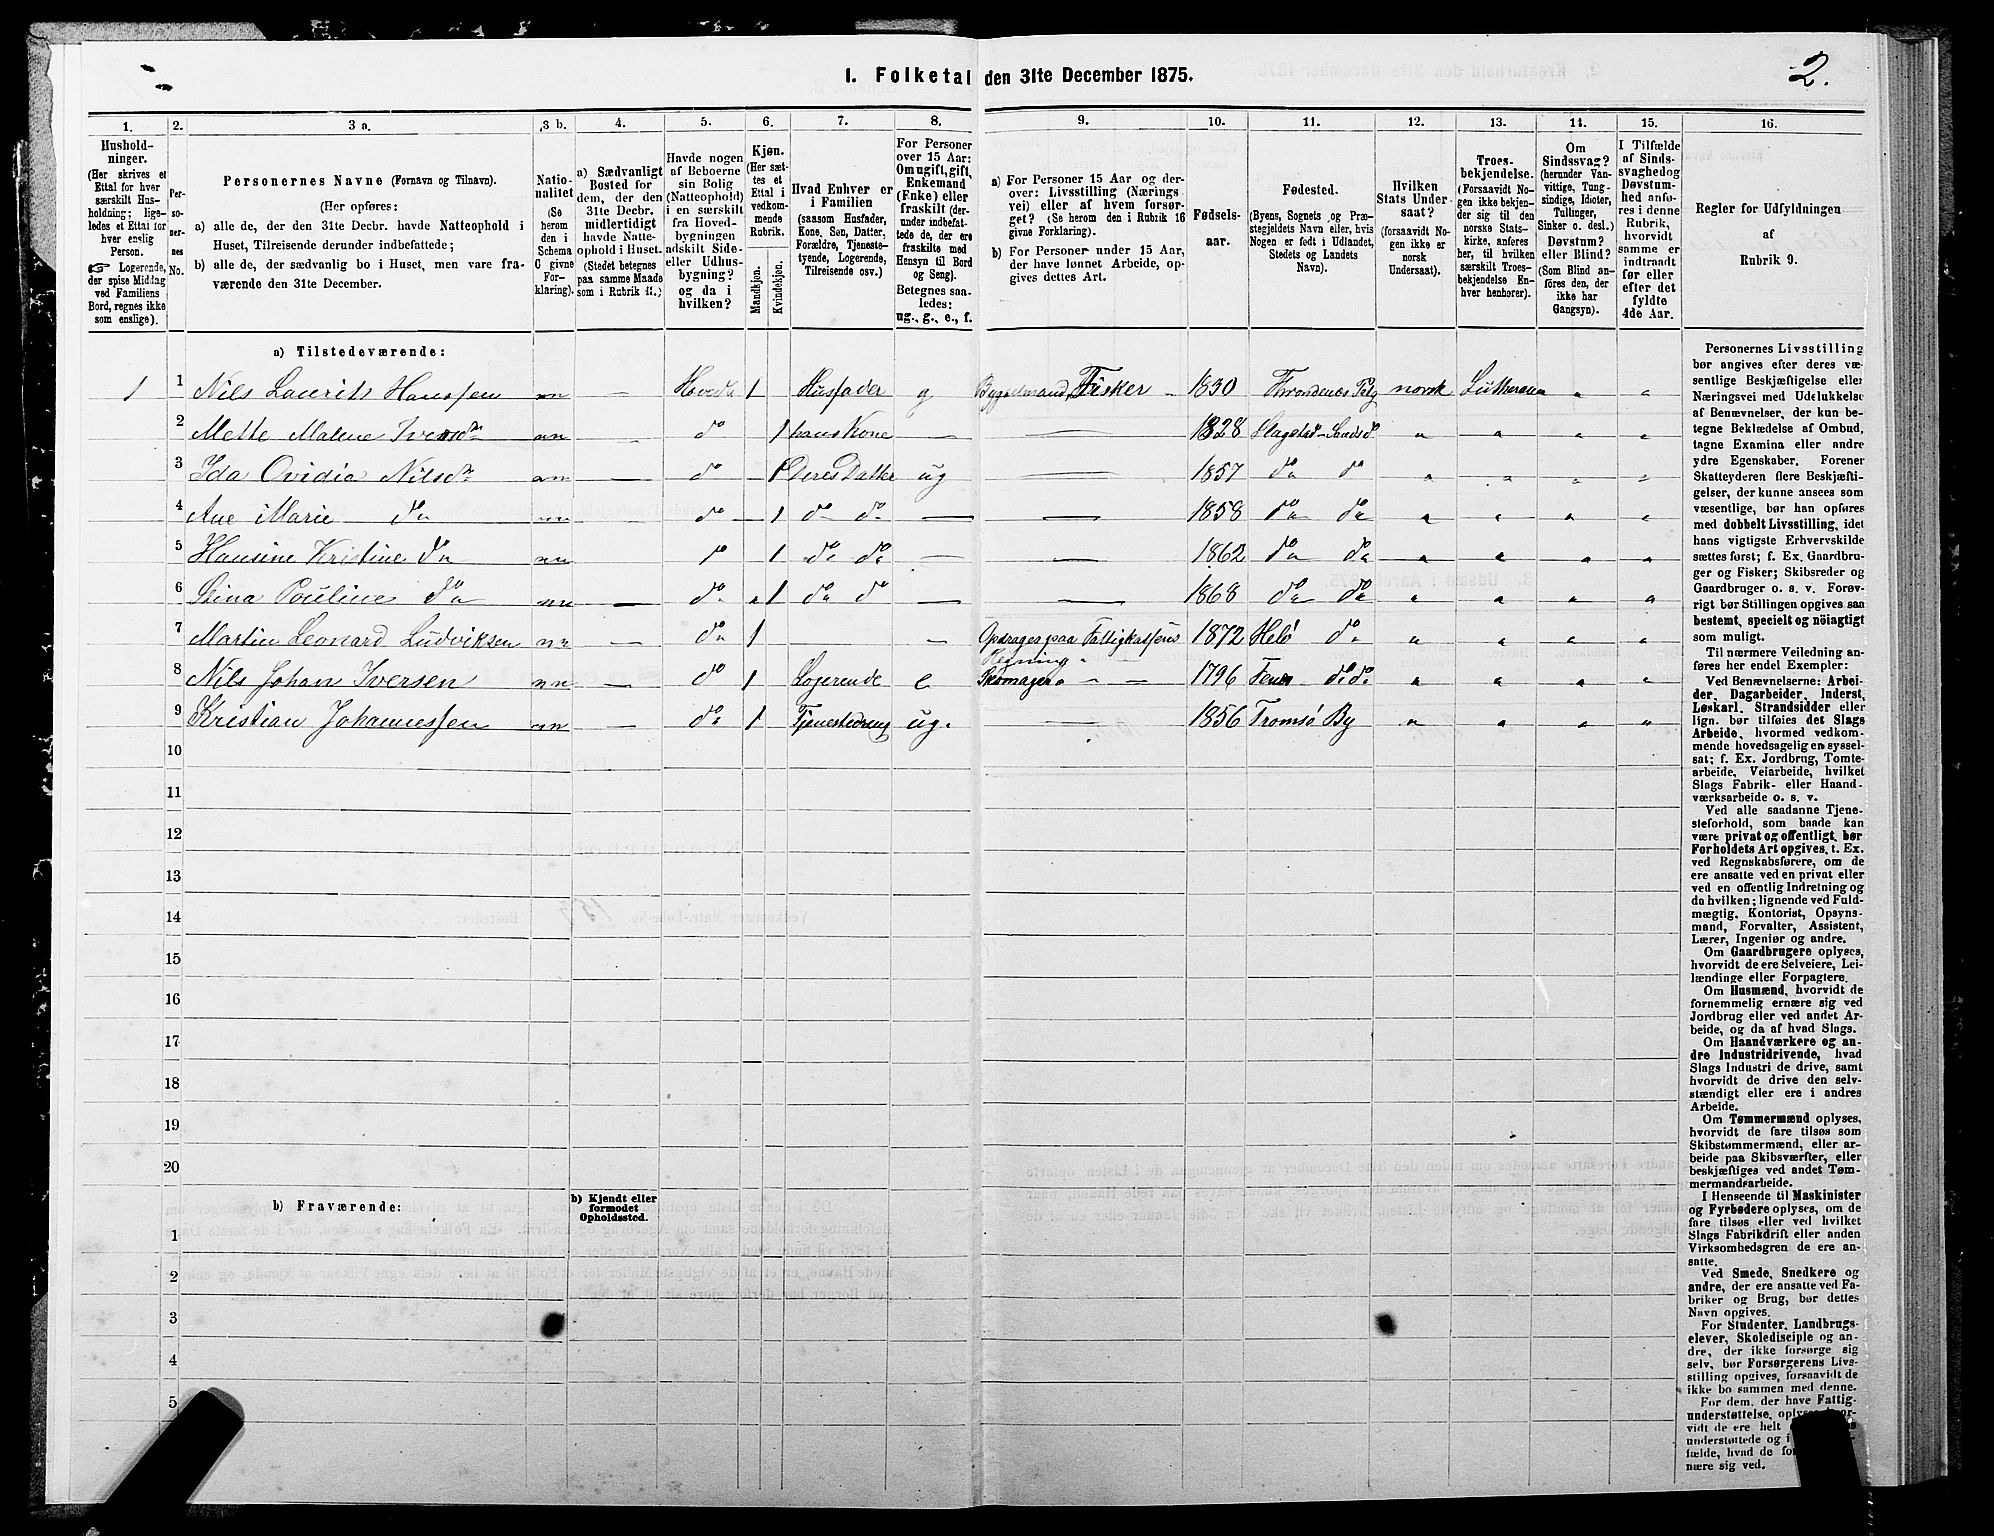 2.
I. Folketal den 31te December 1875.
1. 2. 3 a. 3 b. 4. 5. 6. 7. 8. 9. 10. 11. 12. 13. 14. 15. 16.
Hushold-
ninger.
(Her skrives et
Ettal for hver
særskilt Hus-
holdning; lige-
ledes et Ettal for
hver enslig
Person.
☞ Logerende,
der spise Middag
ved Familiens
Bord, regnes ikke
som enslige).
Per-
so-
ner-
nes
No.
Personernes Navne (Fornavn og Tilnavn).
(Her opføres:
a) alle de, der den 31te Decbr. havde Natteophold i
Huset, Tilreisende derunder indbefattede;
b) alle de, der sædvanlig bo i Huset, men vare fra-
værende den 31te December.
Natio-
nalitet
(Se
herom
den i
Schema
C givne
For-
klaring).
a) Sædvanligt
Bosted for
dem, der den
31te Decbr.
midlertidigt
havde Natte-
ophold i Huset.
(Stedet betegnes
paa samme Maade
som i Rubrik 11.)
Havde nogen
af Beboerne
sin Bolig
(Natteophold)
i en særskilt
fra Hoved-
bygningen
adskilt Side-
eller Udhus-
bygning?
og da i
hvilken?
Kjøn.
(Her sæt-
tes et
Ettal i
vedkom-
mende
Rubrik.
Mandkjøn.
Kvindekjøn.
Hvad Enhver er
i Familien
(saasom Husfader,
Kone, Søn, Datter,
Forældre, Tjeneste-
tyende, Logerende,
Tilreisende osv.)
For Personer
over 15 Aar:
Om ugift, gift,
Enkemand
(Enke) eller
fraskilt (der-
under indbefat-
tede de, der ere
fraskilte med
Hensyn til Bord
og Seng).
Betegnes saa-
ledes:
ug., g., e., f.
a) For Personer 15 Aar og der-
over: Livsstilling (Nærings
vei) eller af hvem forsør-
get? (Se herom den i Rubrik 16
givne Forklaring).
b) For Personer under 15 Aar,
der have lønnet Arbeide, op-
gives dettes Art.
Fødsels-
aar.
Fødested.
(Byens, Sognets og Præ-
stegjeldets Navn eller, hvis
Nogen er født i Udlandet,
Stedets og Landets
Navn).
Hvilken
Stats Under-
saat?
(forsaavidt No-
gen ikke er
norsk
Undersaat).
Troes-
bekjendelse.
(Forsaavidt No-
gen ikke bekjen-
der sig til den
norske Stats-
kirke, anføres
her, til hvilken
særskilt Troes-
bekjendelse En-
hver henhører).
Om
Sindssvag?
(herunder Van-
vittige, Tung-
sindige, Idioter,
Tullinger,
Sinker o. desl.)
Døvstum?
eller Blind?
(Som Blind an-
føres den, der
ikke har
Gangsyn).
I Tilfælde
af Sinds-
svaghed og
Døvstum-
hed anfø-
res i denne
Rubrik,
hvorvidt
samme er
indtraadt
før eller
efter det
fyldte
4de Aar.
Regler for Udfyldningen
af
Rubrik 9.
a) Tilstedeværende:
1 1 Nils Laurits Hanssen nn — Hovedb 1 Husfader g Fisker 1830 Throndenæs norsk Lutheraner
2 Mette Malene Iversdtr nn — do 1 hans Kone — — 1828 Slagstad
3 Ida Ovidia Nilsdtr nn — do 1 Deres Datter ug — 1857 do do
4 Ane Marie do nn — do 1 do do — — 1858 do do
5 Hansine Kristine do nn — do 1 do do — — 1862 do do
6 Stina Pouline do nn — do 1 do do — — 1868 do do
7 Martin Leonard Ludviksen nn — do 1 — Opdrages paa Fattigkassens 1872 Helø do
Regning
8 Nils Johan Iversen nn — do 1 Logerende e Skomager 1796 do do
9 Kristian Johannessen nn — do 1 Tjenestedreng ug. — 1856 Tromsø By
10
11
12
13
14
15
16
17
18
19
20
b) Fraværende:
b) Kjendt eller
formodet
Opholdssted.
1
2
3
4
5
Personernes Livsstilling
bør angives efter deres væ-
sentlige Beskjæftigelse eller
Næringsvei med Udelukkelse
af Benævnelser, der kun be-
tegne Beklædelse af Ombud,
tagne Examina eller andre
ydre Egenskaber. Forener
Skatteyderen flere Beskjæfti-
gelser, der kunne ansees som
væsentlige, bør han opføres
med dobbelt Livsstilling, idet
hans vigtigste Erhvervskilde
sættes først; f. Ex. Gaardbru-
ger og Fisker; Skibsreder og
Gaardbruger o. s. v. Forøv-
rigt bør Stillingen opgives saa
bestemt, specielt og nöiagtigt
som muligt.
Til nærmere Veiledning an-
føres her endel Exempler:
Ved Benævnelserne: Arbei-
der, Dagarbeider, Inderst,
Løskarl, Strandsidder eller
lign. bør tilføies det Slags
Arbeide, hvormed vedkom-
mende hovedsagelig en syssel-
sat; f. Ex. Jordbrug, Tomte-
arbeide, Veiarbeide, hvilket
Slags Fabrik- eller Haand-
værksarbeide o. s. v.
Ved alle saadanne Tjene-
steforhold, som baade kan
være privat og offentligt, bør
Forholdets Art opgives, t. Ex.
ved Regnskabsførere, om de
ere ansatte ved en privat eller
ved en offentlig Indretning og
da hvilken; lignende ved Fuld-
mægtig, Kontorist, Opsyns-
mand, Forvalter, Assistent,
Lærer, Ingeniør og andre.
Om Gaardbrugere oplyses,
hvorvidt de ere Selveiere, Lei-
lændinge eller Forpagtere.
Om Husmænd, hvorvidt de
fornemmelig ernære sig ved
Jordbrug eller ved andet Ar-
beide, og da af hvad Slags.
Om Haandværkere og an-
dre Industridrivende, hvad
Slags Industri de drive, samt
hvorvidt de drive den selv-
stændigt eller ere i andres
Arbeide.
Om Tømmermænd oplyses,
hvorvidt de fare tilsøs som
Skibstømmermænd, eller ar-
beide paa Skibsværfter, eller
beskjæftiges ved andet Tøm-
mermandsarbeide.
I Henseende til Maskinister
og Fyrbødere oplyses, om de
fare tilsøs eller ved hvilket
Slags Fabrikdrift eller anden
Virksomhedsgren de ere an-
satte.
Ved Smede, Snedkere og
andre, der ere ansatte ved Fa-
briker og Brug, bør dettes
Navn opgives.
For Studenter, Landbrugs-
elever, Skoledisciple og an-
dre, der ikke forsørge sig
selv, bør Forsørgerens Livs-
stilling opgives, forsaavidt de
ikke bo sammen med denne.
For dem, der have Fattig-
understøttelse,
vidt de ere helt
understøttede og i
fælde, hvad de
nære sig ved.